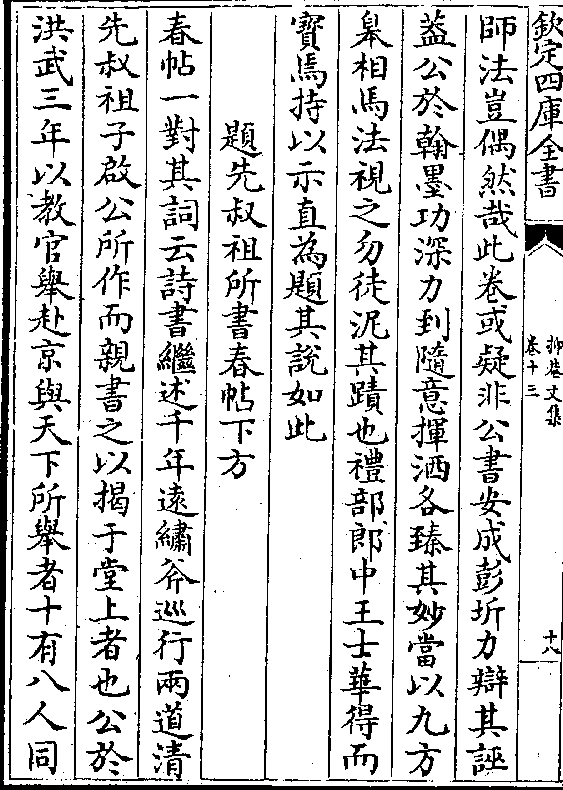 欽定四庫全書
抑菴文集
卷十三
十八
師法豈偶然哉此卷或疑非公書安成彭圻力辯其誣
葢公於翰墨功深力到隨意揮洒各臻其妙當以九方
皋相馬法視之勿徒泥其蹟也禮部郎中王士華得而
寳焉持以示直為題其說如此
題先叔祖所書春帖下方
春帖一對其詞云詩書繼述千年逺繡斧巡行兩道清
先叔祖子啟公所作而親書之以揭于堂上者也公於
洪武三年以教官舉赴京與天下所舉者十有八人同